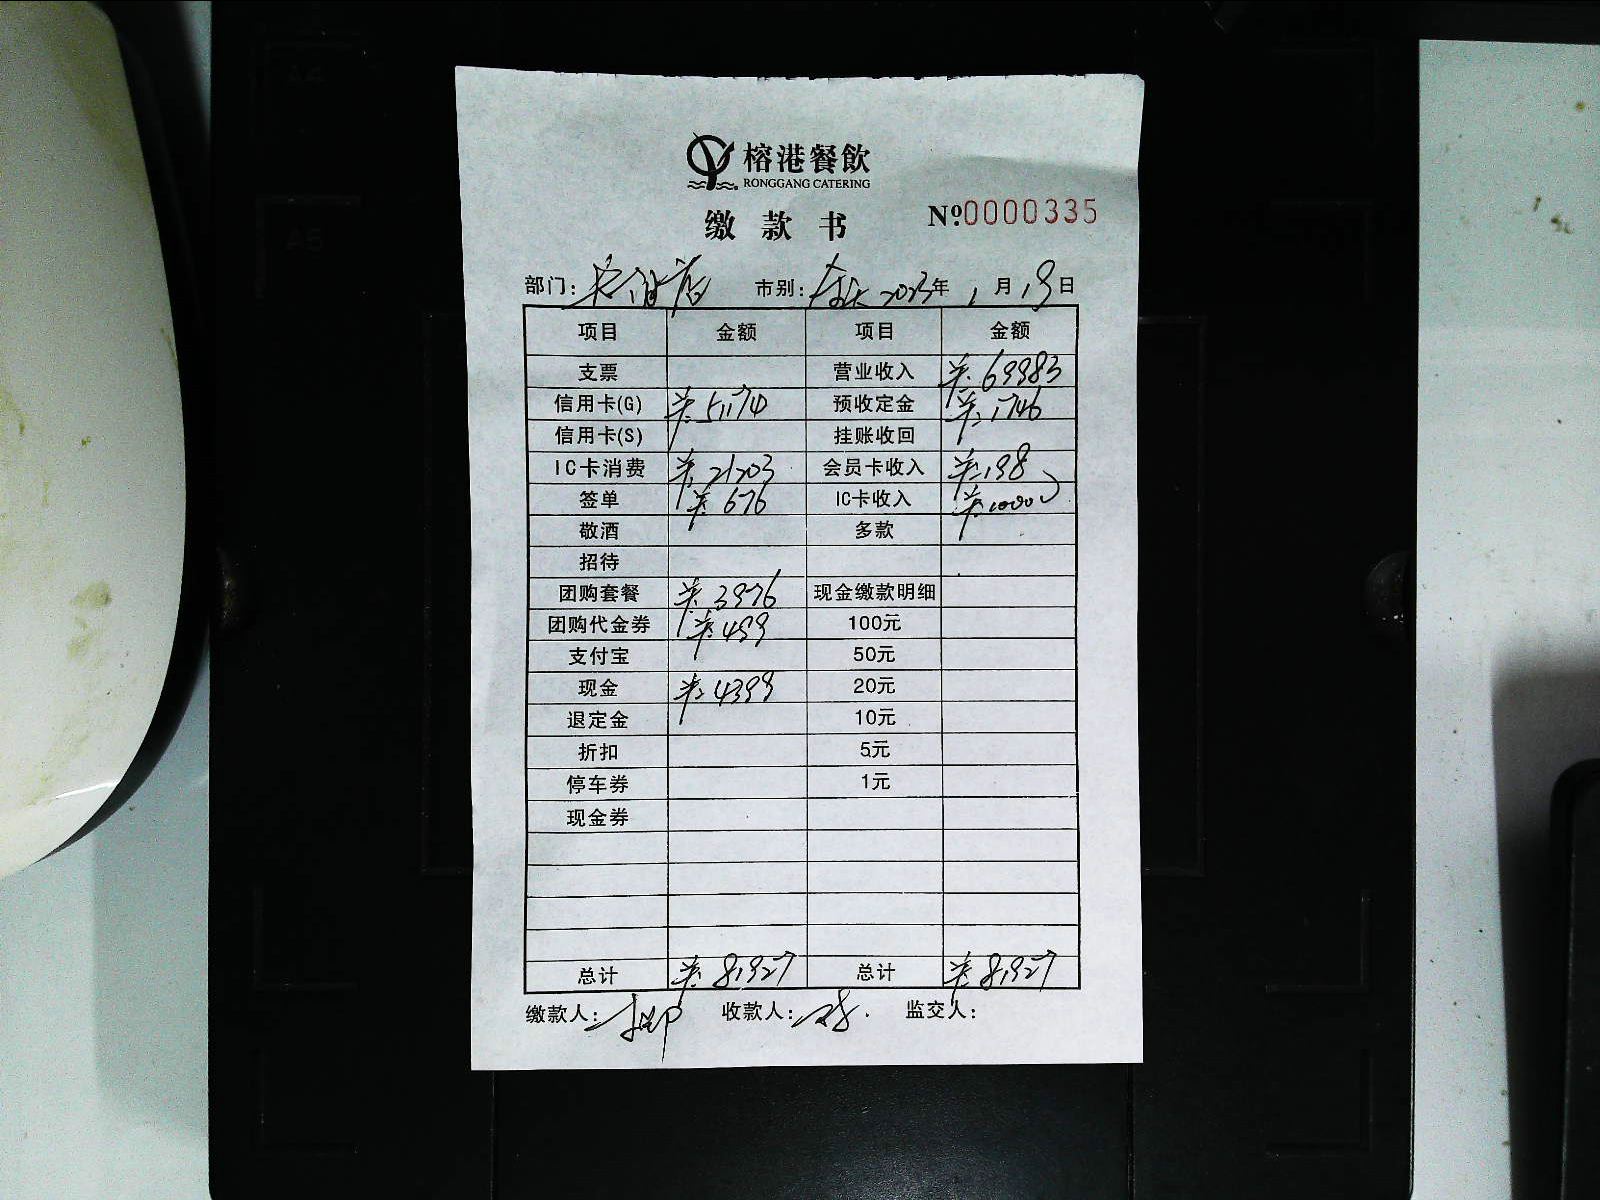 榕港餐飲
RONGGANG CATERING
缴款书 №0000335
部门: 店 市别: 2023年1月19日
项目 金额 项目 金额
支票 营业收入 ¥69983
信用卡(G) ¥51174 预收定金 ¥1746
信用卡(S) 挂账收回
IC卡消费 ¥21203 会员卡收入 ¥198
签单 ¥676 IC卡收入 ¥10000
敬酒 多款
招待
团购套餐 ¥3976 现金缴款明细
团购代金券 ¥499 100元
支付宝 50元
现金 ¥4399 20元
退定金 10元
折扣 5元
停车券 1元
现金券
总计 ¥81927 总计 ¥81927
缴款人: 收款人: 监交人: